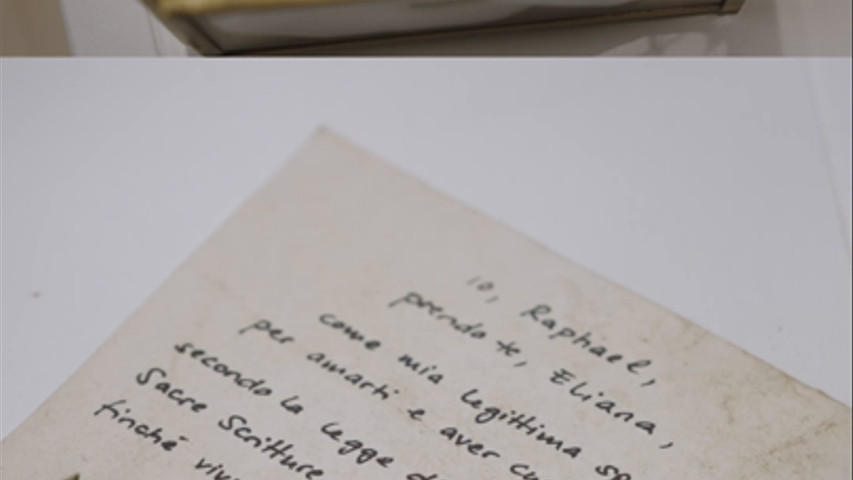 io, Raphael,
prendo te, Eliana,
come mia legittima
per amarti e aver
secondo la legge
Sacre Scritture
finché